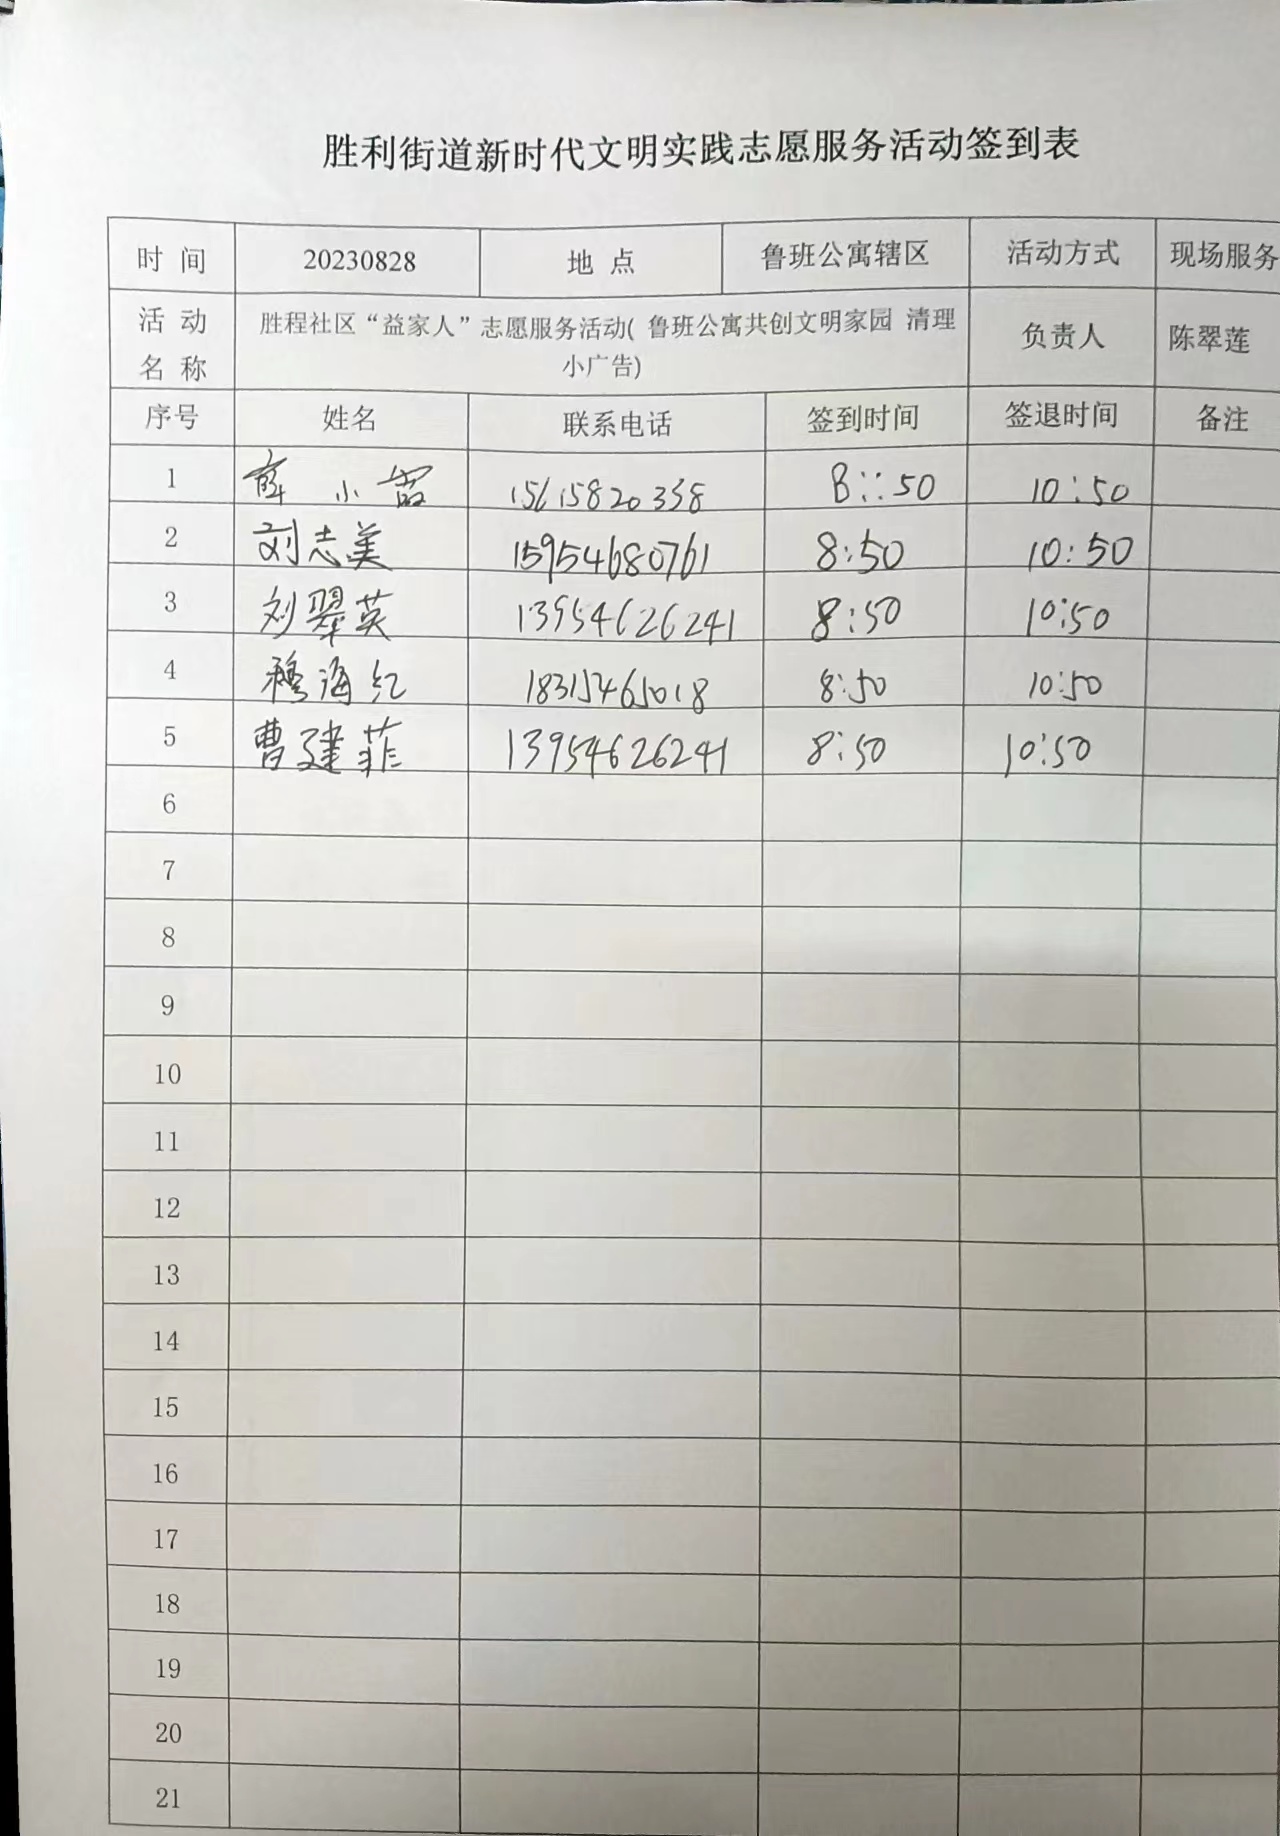 胜利街道新时代文明实践志愿服务活动签到表
时 间 20230828 地 点 鲁班公寓辖区 活动方式 现场服务
活 动 名 称 胜程社区“益家人”志愿服务活动( 鲁班公寓共创文明家园 清理
小广告) 负责人 陈翠莲
序号 姓名 联系电话 签到时间 签退时间 备注
1 薛小 15615820338 8::50 10:50
2 刘志美 15954680761 8:50 10:50
3 刘翠英 13954626241 8:50 10:50
4 穆海红 18315465018 8:50 10:50
5 曹建菲 13954626241 8:50 10:50
6
7
8
9
10
11
12
13
14
15
16
17
18
19
20
21